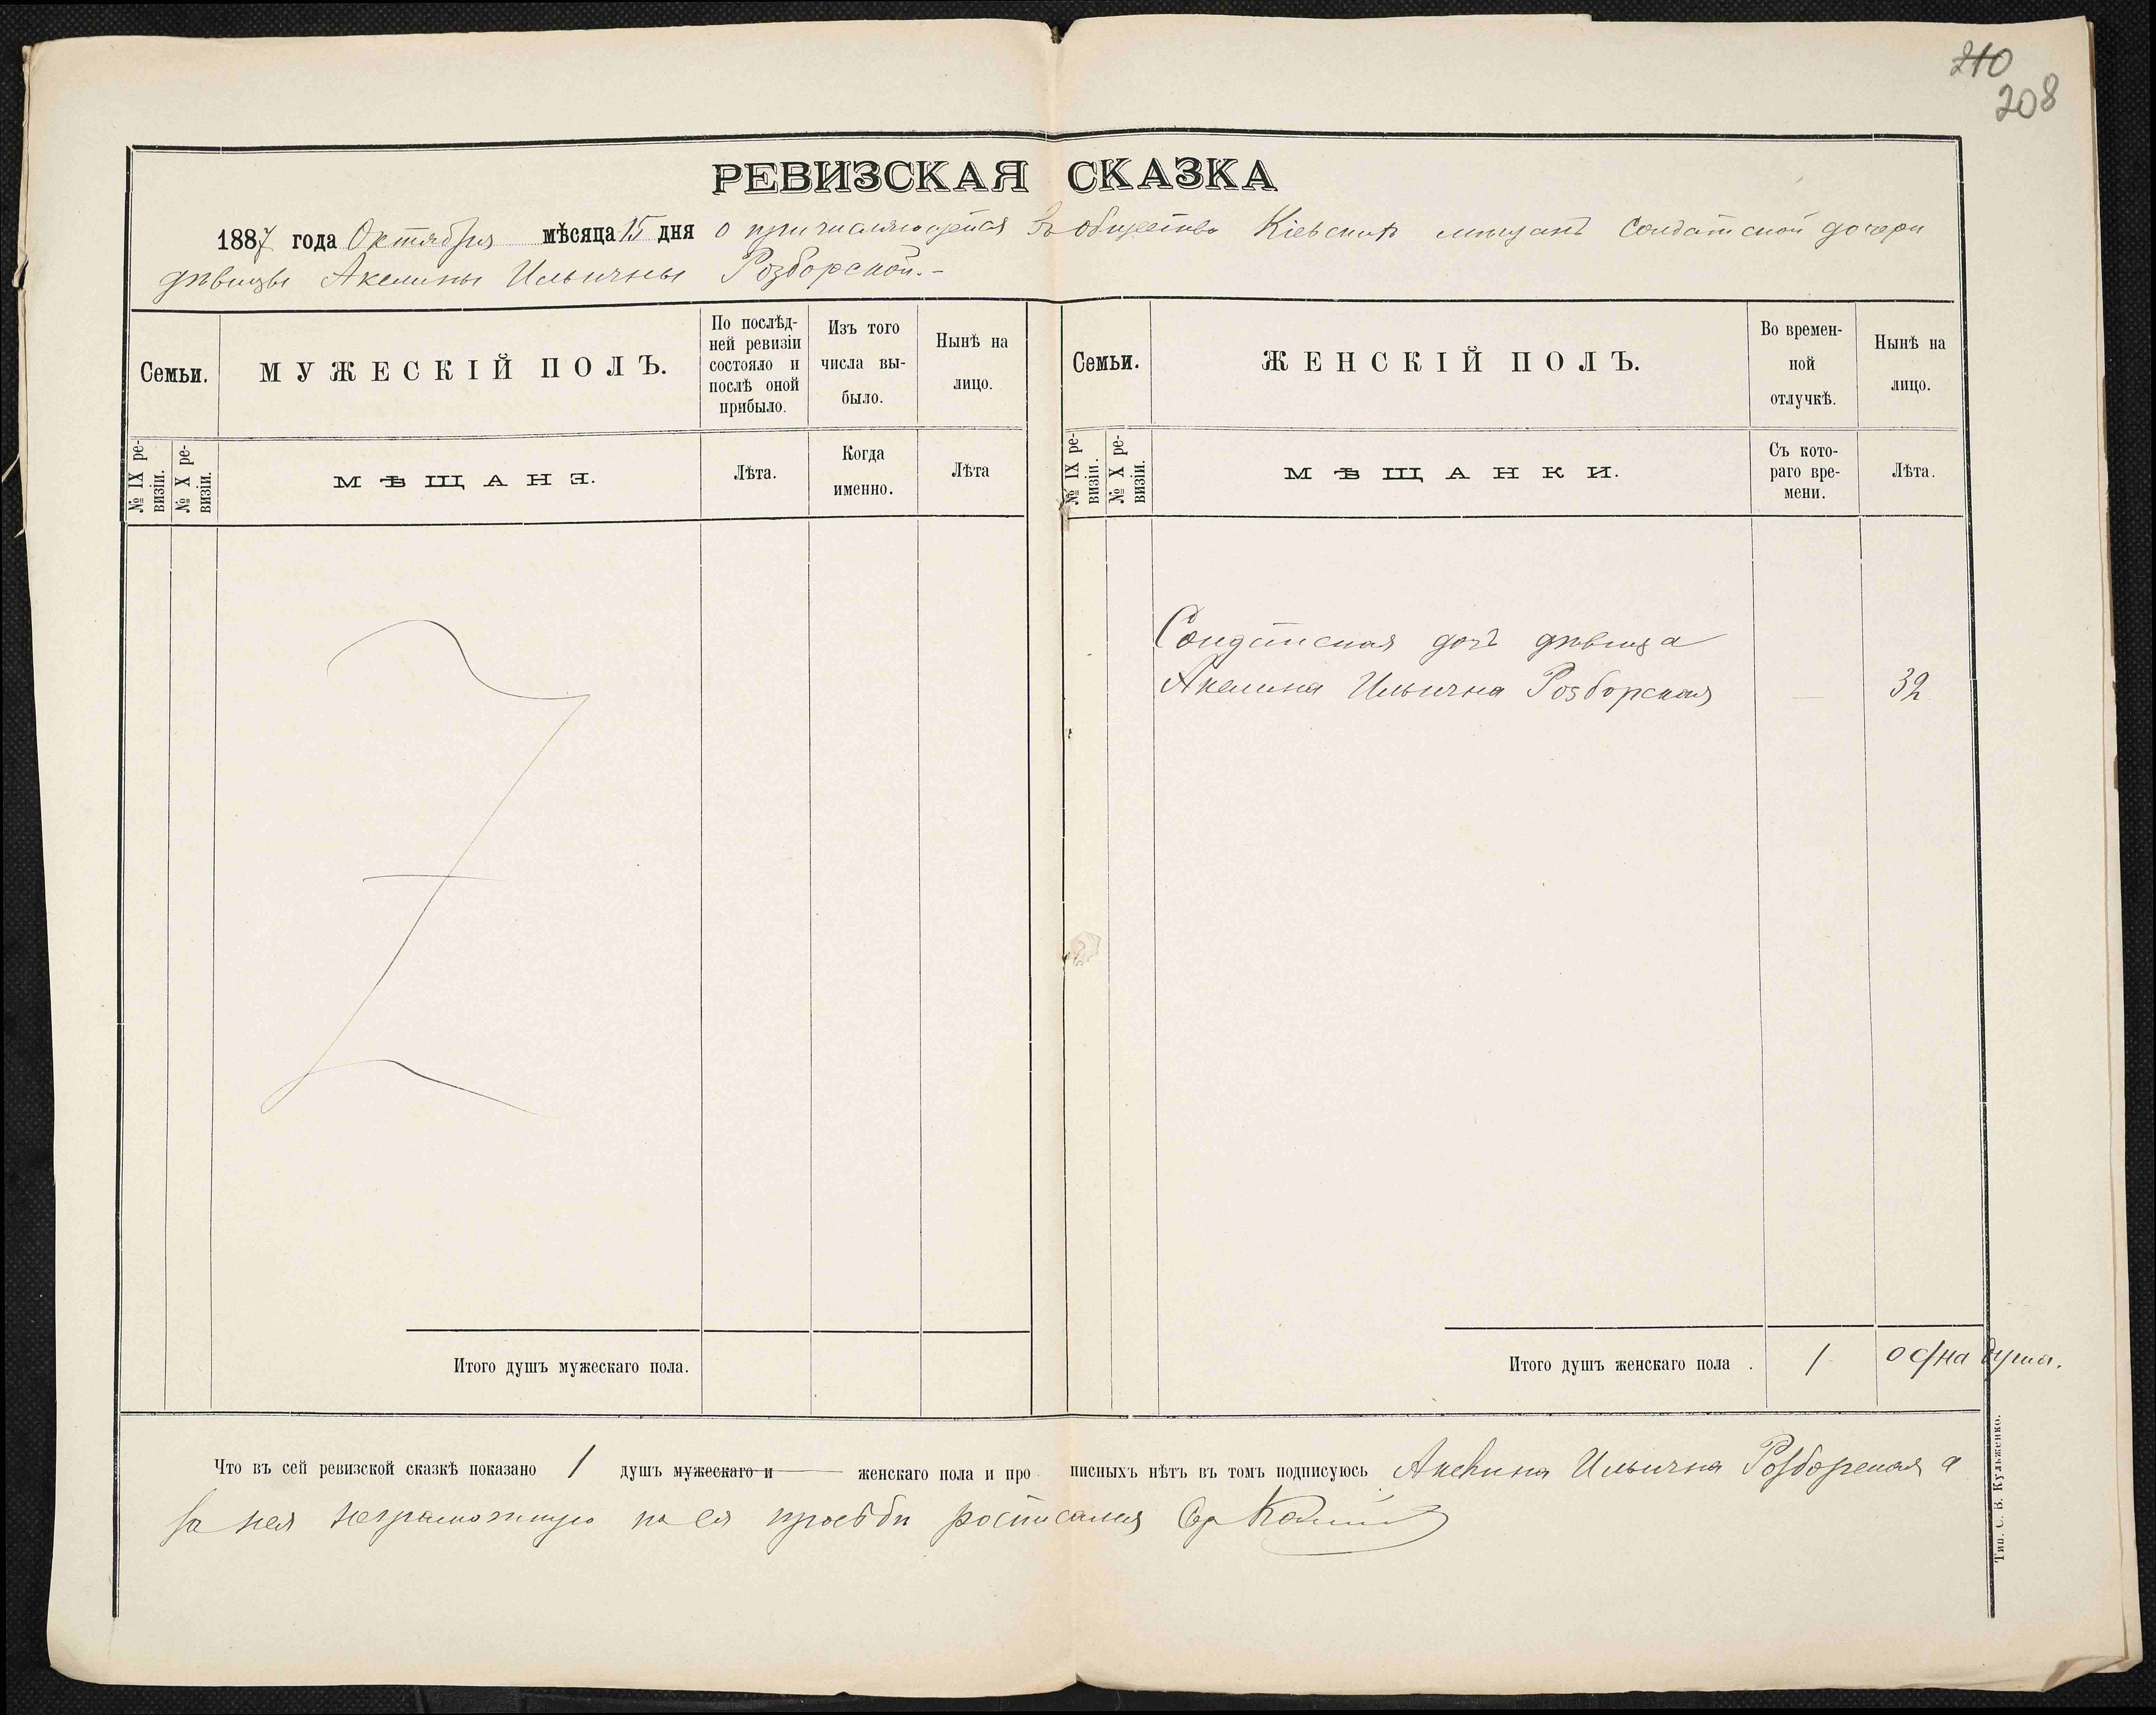 210
208
РЕВИЗСКАЯ СКАЗКА
1887 года Октября мѣсяца 15 дня о причисляющейся въ общество Кіевскихъ мещанъ Солдатской дочери
дѣвицы Акелины Ильичны Розборской.-
Семьи.
МУЖЕСКІЙ ПОЛЪ.
По послѣд-
ней ревизіи
состояло и
послѣ оной
прибыло.
Изъ того
числа вы-
было.
Нынѣ на
лицо.
№ IX ре-
визіи.
№ X ре-
визіи.
МѢЩАНЕ.
Лѣта.
Когда
именно.
Лѣта
Семьи.
ЖЕНСКІЙ ПОЛЪ.
Во времен-
ной
отлучкѣ.
Нынѣ на
лицо.
№ IX ре-
визіи.
№ X ре-
визіи.
МѢЩАНКИ.
Съ кото-
раго вре-
мени.
Лѣта.
Солдатская дочь дѣвица
Акелина Ильична Розборская — 32
Итого душъ мужескаго пола.
Итого душъ женскаго пола . 1 одна душа.
Что въ сей ревизской сказкѣ показано 1 душъ мужескаго и женскаго пола и про писныхъ нѣтъ въ томъ подписуюсь Акелина Ильична Розборская а
за нея неграмотную по ея просьбѣ росписался
Тип. С. В. Кульженко.